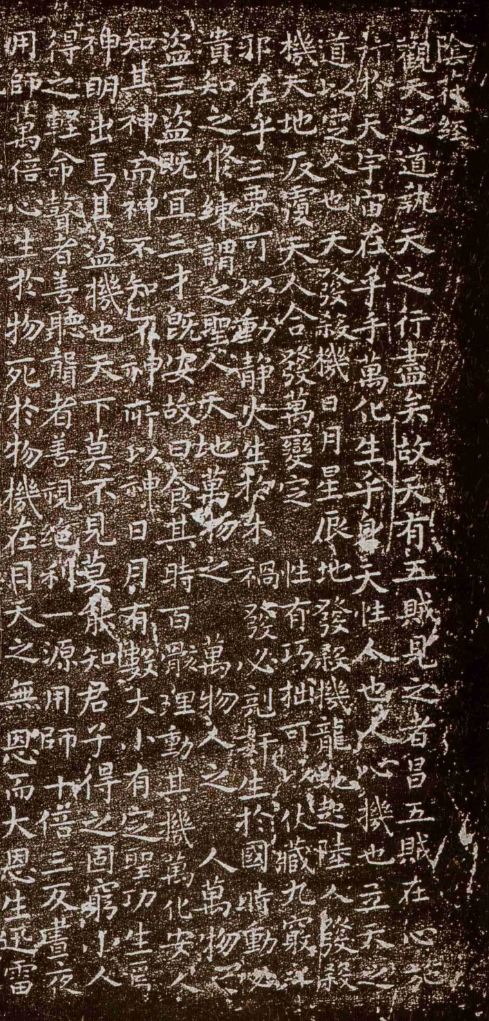 陰符經
觀天之道執天之行盡矣故天有五賊見之者昌五賊在心施
行於天宇宙在乎手萬化生乎身天性人也人心機也立天之
道以定人也天發殺機日月星辰地發殺機龍虵起陸人發殺
機天地反覆天人合發萬變定性有巧拙可以伏藏九竅之
邪在乎三要可以動静火生於木禍發必剋奸生於國時動必
貴知之修練謂之聖人天地萬物之萬物人之人萬物之
盜三盜既宜三才既安故曰食其時百骸理動其機萬化安人
知其神而神不知不神所以神日月有數大小有定聖功生焉
神明出焉其盜機也天下莫不見莫能知君子得之固窮小人
得之輕命瞽者善聽聾者善視絶利一源用師十倍三反晝夜
用師萬倍心生於物死於物機在目天之無恩而大恩生迅雷